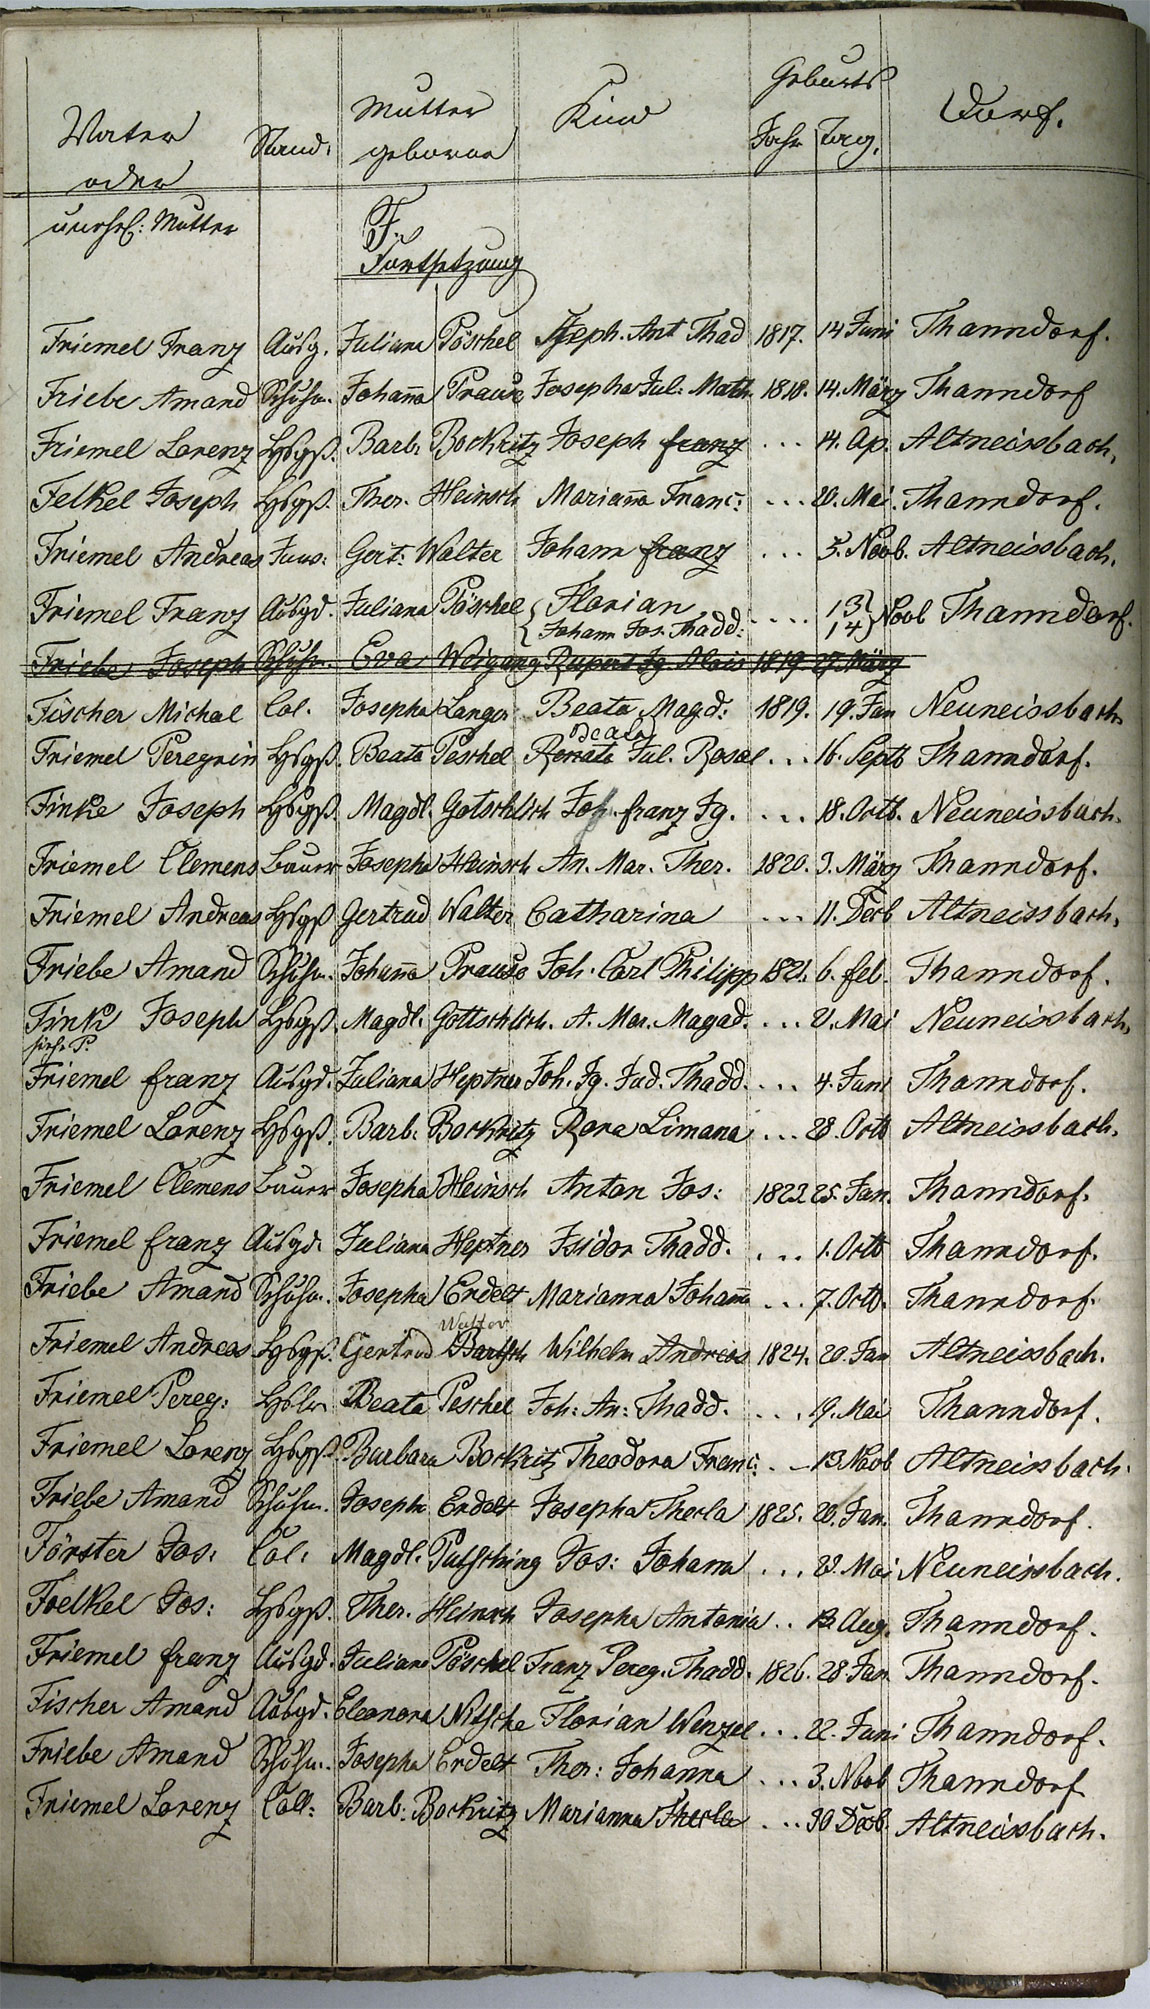 Vater oder unehel: Mutter Stand. Mutter geborne Kind Geburts Jahr Tag. Dorf.
F.
Fortsetzung
Friemel Franz Ausg. Juliana Pöschel Joseph. Ant Thad 1817. 14 Juni Thanndorf.
Friebe Amand Schuhm. Johanna Prause Josepha Jul: Math. 1818. 14. März Thanndorf
Friemel Lorenz Hsgß. Barb: Bockritz Joseph franz ... 14. Ap. Altneissbach.
Felkel Joseph Hsgß. Ther. Heinsch Marianna Franc: ... 20. Mai. Thanndorf.
Friemel Andreas Inns: Gert: Walter Johann franz ... 5. Novb. Altneissbach.
Friemel Franz Ausgd. Juliana Pöschel { Florian .... 13 } Novb Thanndorf.
{ Johann Jos. Thadd: 14 }
Friebe Joseph Schuhm. Eva Weigang Rupert Ig Alois 1819 27. März
Fischer Michael Col. Josepha Langer Beata Magd: 1819. 19. Jan Neuneissbach.
Beata
Friemel Peregrin Hsgß. Beata Peschel Renata Jul. Rosal ... 16. Septb Thanndorf.
Finke Joseph Hsgß. Magdl. Gotschlich Joh. franz Ig. ... 18. Octb. Neuneissbach.
Friemel Clemens Bauer Josepha Heinsch An. Mar. Ther. 1820. 9. März Thanndorf.
Friemel Andreas Hsgß Gertrud Walter Catharina ... 11. Decb Altneissbach.
Friebe Amand Schuhm. Johanna Prause Joh. Carl Philipp 1821. 6. feb. Thanndorf.
Fink Joseph Hsgß. Magdl. Gottschlich. A. Mar. Magad. ... 2. Mai Neuneissbach.
siehe P.
Friemel franz Ausgd. Juliana Heptner Joh. Ig. Jud. Thadd. ... 4. Juni Thanndorf.
Friemel Lorenz Hsgß. Barb: Bockritz Rosa Limana ... 28. Octb Altneissbach.
Friemel Clemens Bauer Josepha Heinsch Anton Jos: 1823. 25. Jan. Thanndorf.
Friemel franz Ausgd. Juliana Heptner Isidor Thadd. ... 1. Octb Thanndorf.
Friebe Amand Schuhm. Josepha Erdelt Marianna Johanna ... 7. Octb. Thanndorf.
Walter
Friemel Andreas Hsgß. Gertrud Bartsch Wilhelm Andreas 1824. 20. Jan Altneissbach.
Friemel Pereg: Hslr Beata Peschel Joh: An: Thadd. ... 9. Mai Thanndorf.
Friemel Lorenz Hsgß. Barbara Bockritz Theodora Franc: .. 13. Novb Altneissbach.
Friebe Amand Schuhm. Joseph Erdelt Josepha Thecla 1825. 20. Jan. Thanndorf.
Förster Jos: Col: Magdl. Putsching Jos: Johann ... 23. Mai Neuneissbach.
Foelkel Jos: Hsgß. Ther. Heinsch Josepha Antonia .. 13. Aug. Thanndorf.
Friemel franz Ausgd. Juliana Pöschel Franz Pereg. Thadd. 1826. 28 Jan. Thanndorf.
Fischer Amand Ausgd. Eleonora Nitsche Florian Wenzel ... 22. Juni Thanndorf.
Friebe Amand Schuhm. Josepha Erdelt Ther: Johanna ... 3. Novb Thanndorf
Friemel Lorenz Coll: Barb: Bockritz Marianna Thecla ... 30 Decb. Altneissbach.